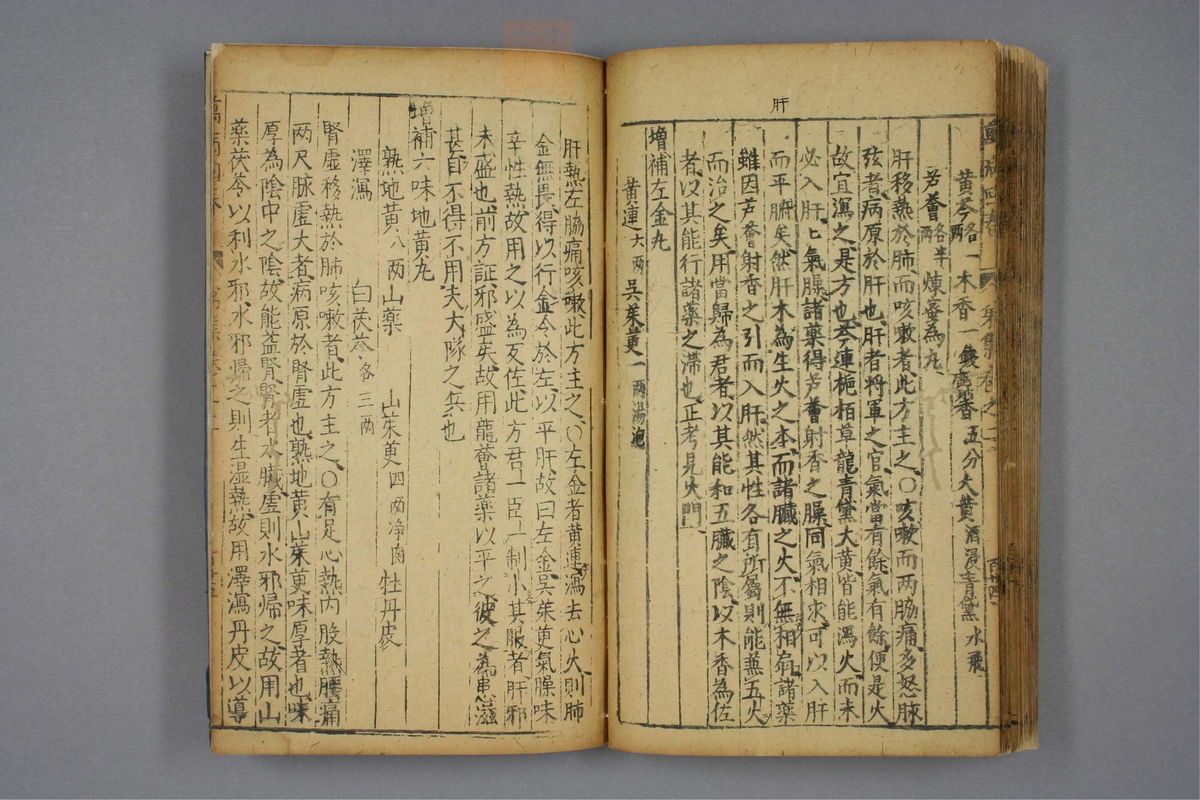 肝
黄芩各一兩 木香一錢 麝香五分 大黄酒浸 青黛水飛
芦薈各半兩 煉蜜為丸
肝移熱於肺而咳嗽者此方主之○咳嗽而两脇痛多怒脉
弦者病原於肝也肝者将軍之官氣當有餘氣有餘便是火
故宜瀉之是方也芩連梔栢草龍青黛大黄皆能瀉火而未
必入肝上氣臊諸藥得芦薈射香之臊同氣相求可以入肝
而平腑矣然肝木為生火之本而諸臓之火不無相扇諸藥
雖因芦薈射香之引而入肝然其性各有所屬則能兼五火
而治之矣用當歸為君者以其能和五臓之陰以木香為佐
者以其能行諸藥之滯也正考見火門
増補左金丸
黄連六两 吳茱萸一兩湯泡
肝熱左脇痛咳嗽此方主之○左金者黄連瀉去心火則肺
金無畏得以行金令於左以平肝故曰左金吳茱萸氣臊味
辛性熱故用之以為反佐此方君一臣一制小其服者肝邪
未盛也前方証邪盛矣故用龍薈諸藥以平之彼之為患滋
甚自不得不用夫大隊之兵也
増補六味地黄丸
熟地黄八两 山藥 山茱萸四两净肉 牡丹皮
澤瀉 白茯苓各三两
腎虚移熱於肺咳嗽者此方主之○有足心熱内股熱腰痛
两尺脉虚大者病原於腎虚也熟地黄山茱萸味厚者也味
厚為陰中之陰故能益腎腎者水臓虚則水邪帰之故用山
藥茯苓以利水邪水邪帰之則生湿熱故用澤瀉丹皮以導